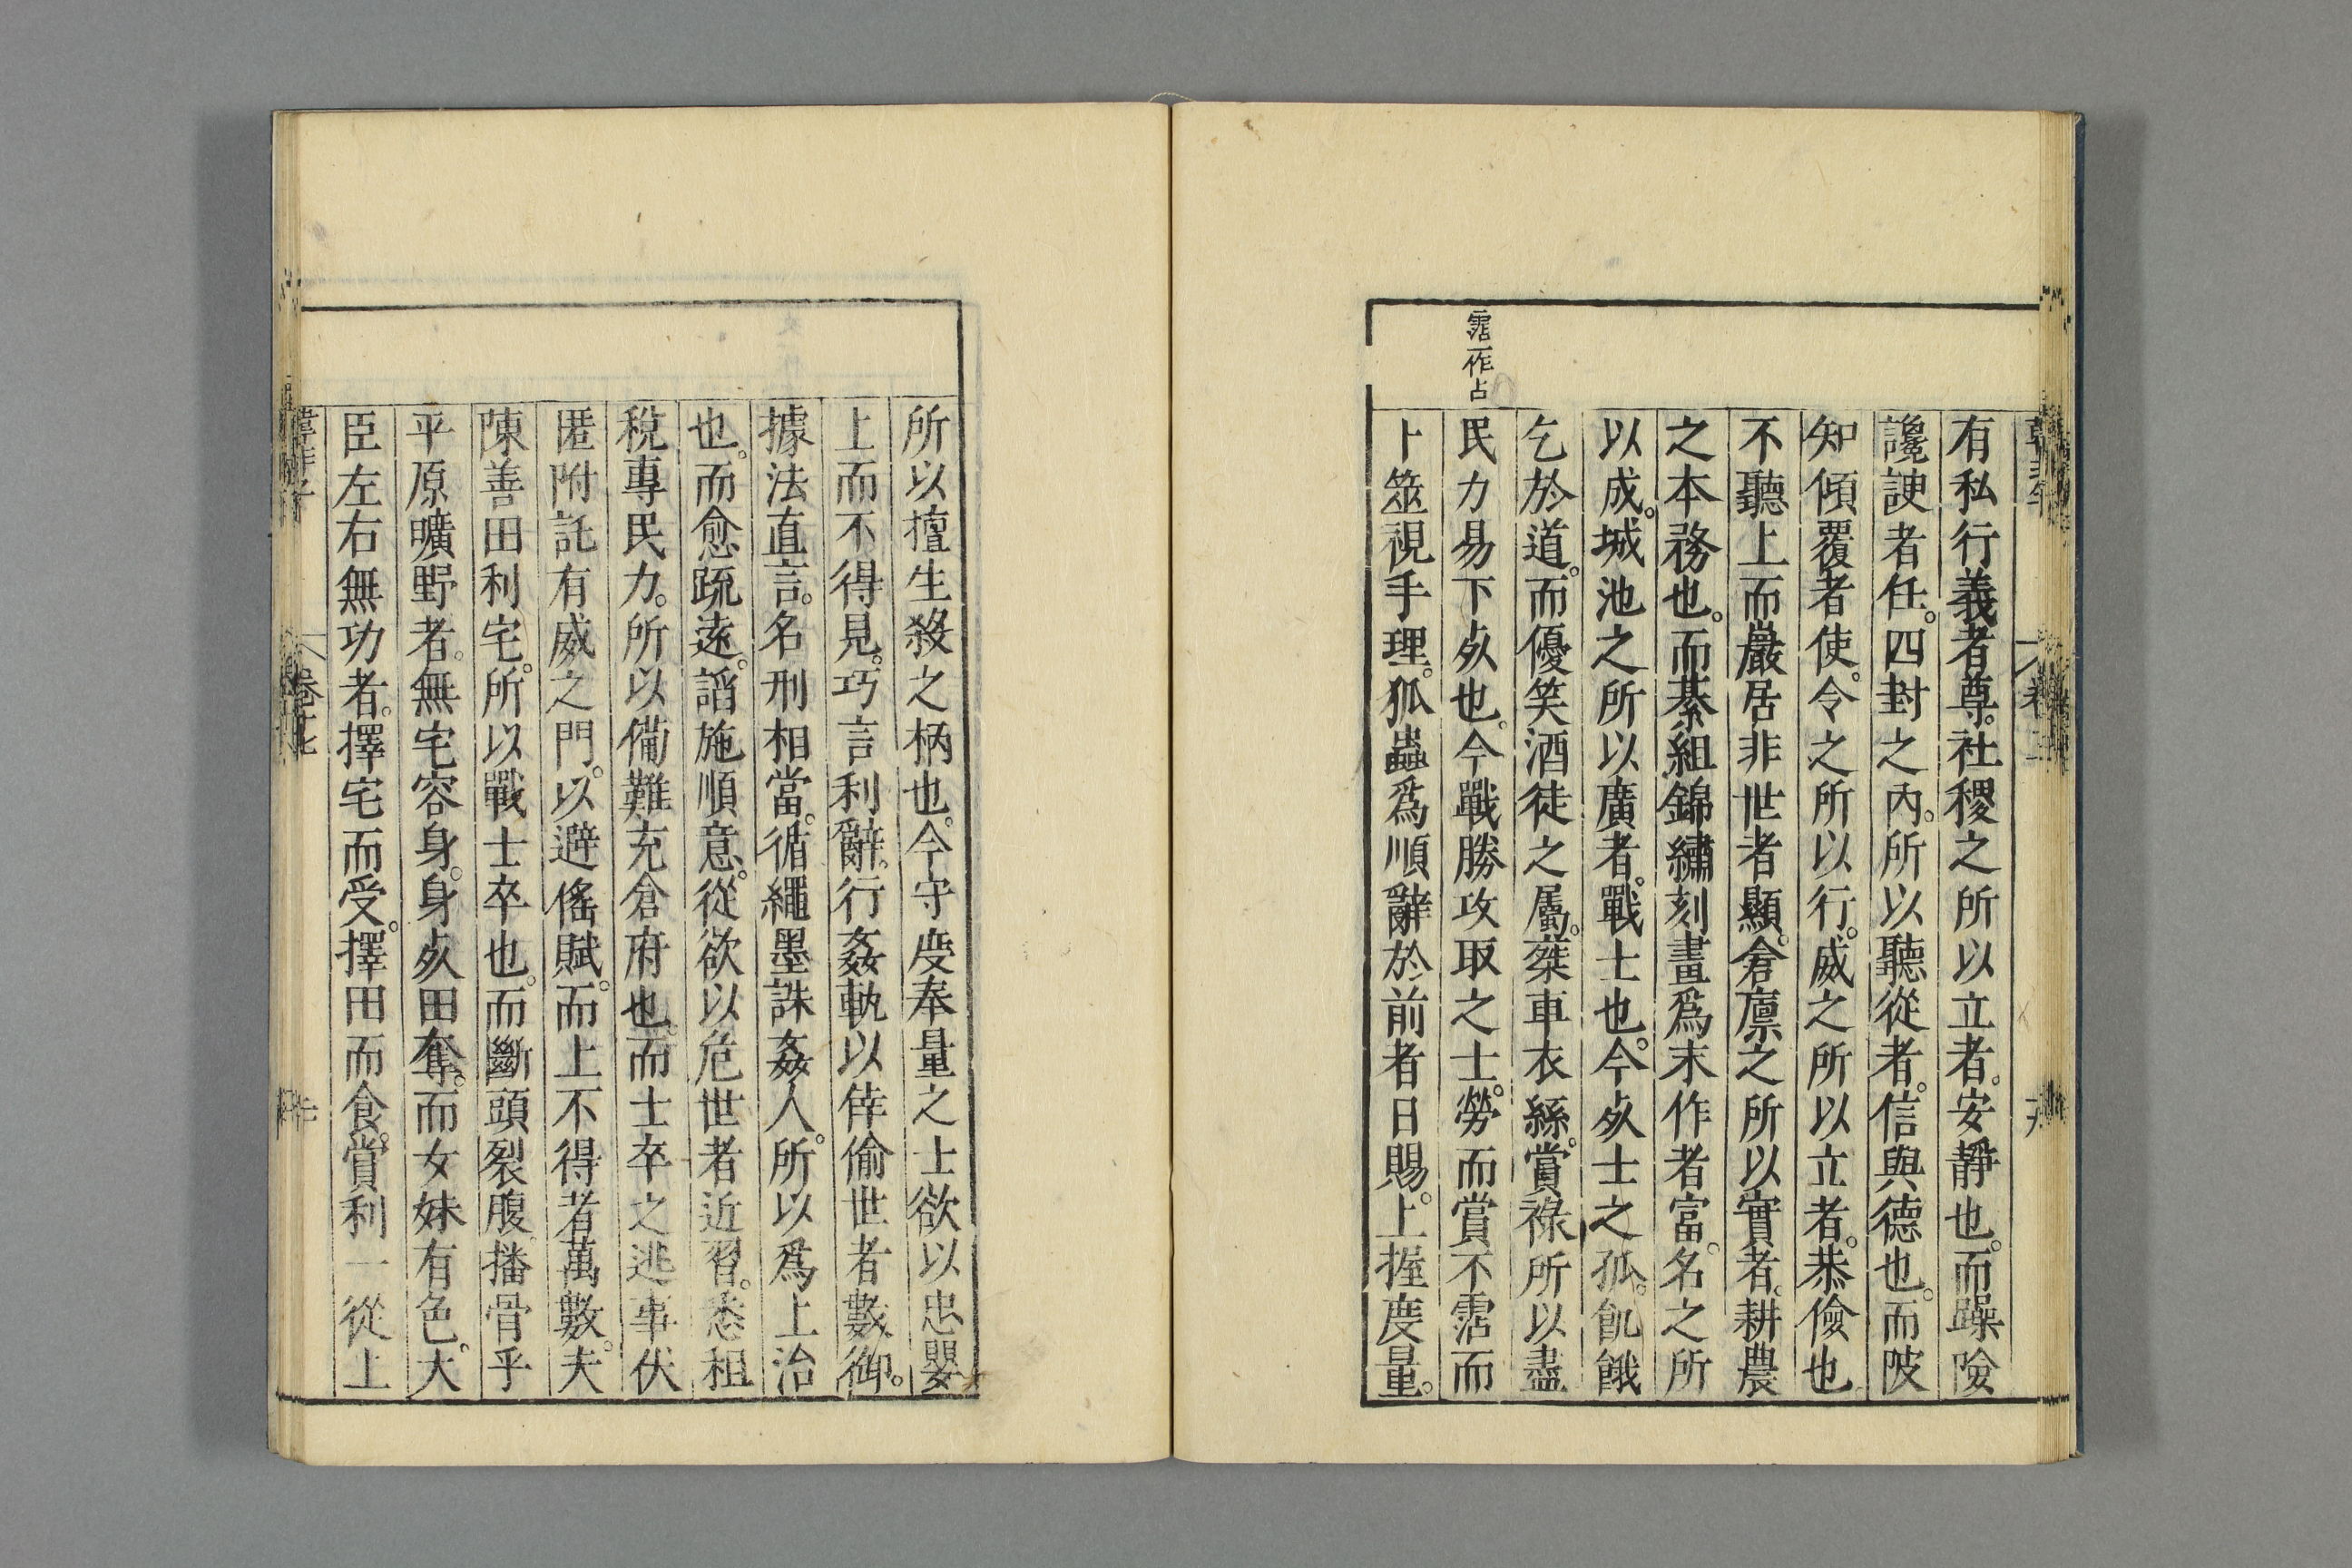 有私行義者尊。社稷之所以立者。安靜也。而躁險
讒諛者任。四封之內。所以聽從者。信與德也。而陂
知傾覆者使。令之所以行。威之所以立者。恭儉也。
不聽上而巖居非世者顯。倉廩之所以實者。耕農
之本務也。而綦組錦繡刻畫爲末作者富。名之所
以成。城池之所以廣者。戰士也。今死士之孤。飢餓
乞於道。而優笑酒徒之屬。乘車衣絲。賞祿所以盡
霑一作占
民力易下死也。今戰勝攻取之士。勞而賞不霑而
卜筮視手理。狐蟲爲順辭於前者日賜。上握度量。
所以擅生殺之柄也。今守度奉量之士欲以忠嬰
上而不得見。巧言利辭。行姦軌以倖偷世者數御。
據法直言。名刑相當。循繩墨誅姦人。所以爲上治
也。而愈疏遠。謟施順意。從欲以危世者近習。悉租
稅專民力。所以備難充倉府也。而士卒之逃事伏
匿附託有威之門。以避徭賦。而上不得者萬數。夫
陳善田利宅。所以戰士卒也。而斷頭裂腹播骨乎
平原曠野者。無宅容身。身死田奪。而女妹有色。大
臣左右無功者。擇宅而受。擇田而食。賞利一從上